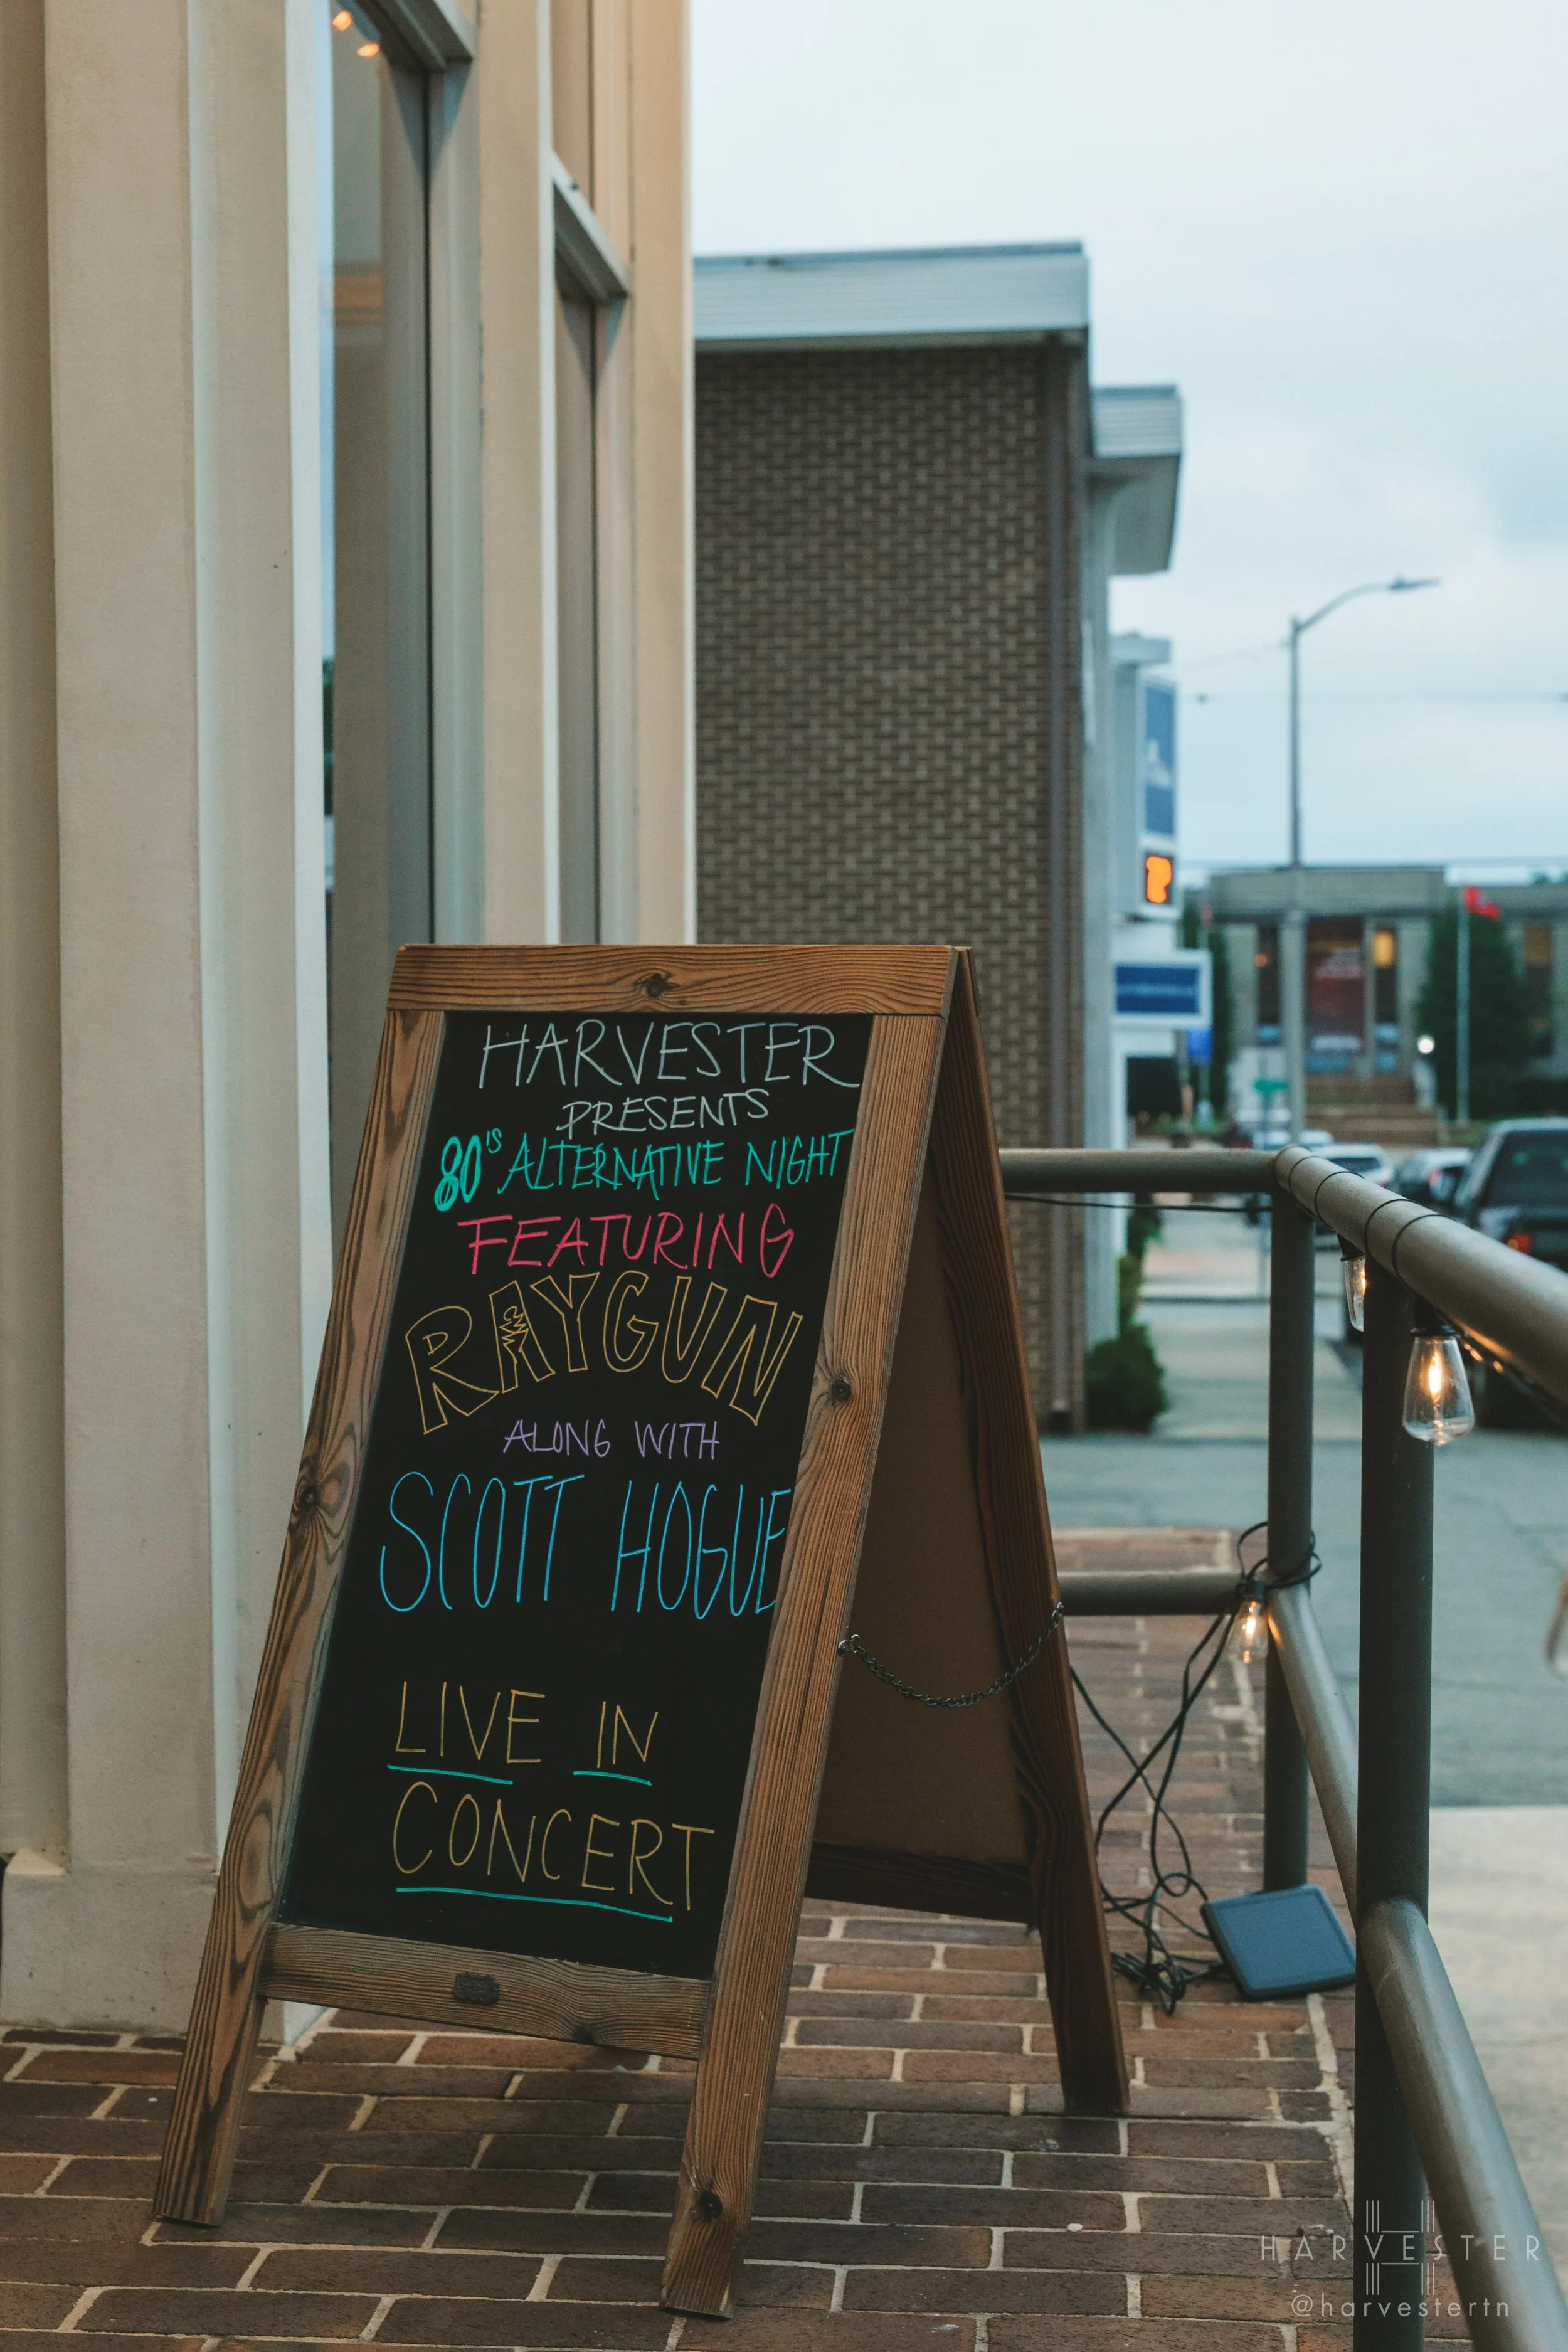 HARVESTER
PRESENTS
80'S ALTERNATIVE NIGHT
FEATURING
RAYGUN
ALONG WITH
SCOTT HOGUE
LIVE IN
CONCERT
HARVESTER
@harvestertn